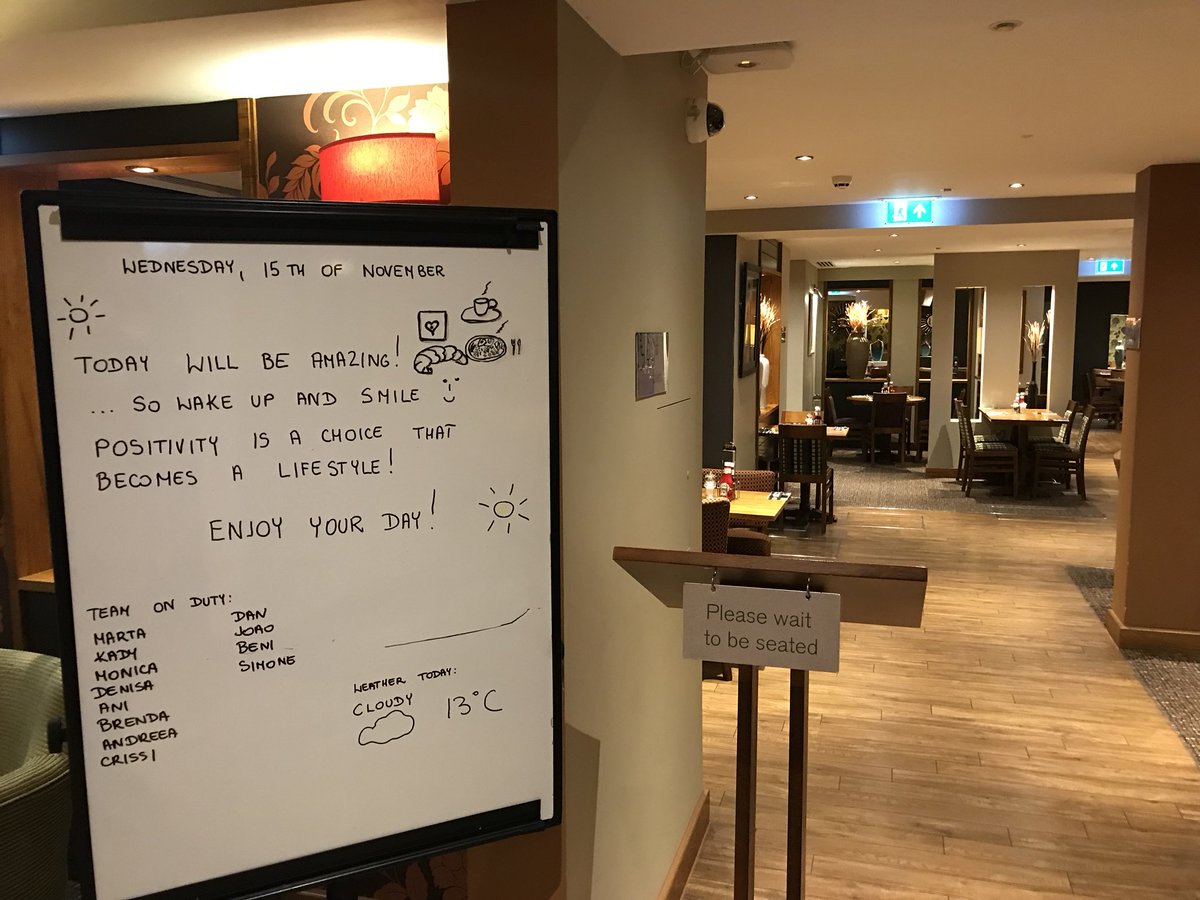 WEDNESDAY, 15TH OF NOVEMBER
TODAY WILL BE AMAZING!
... SO WAKE UP AND SMILE
POSITIVITY IS A CHOICE THAT
BECOMES A LIFESTYLE!
ENJOY YOUR DAY!
TEAM ON DUTY:
MARTA
KADY
MONICA
DENISA
ANI
BRENDA
ANDREEA
CRISSI
DAN
JOAO
BENI
SIMONE
WEATHER TODAY:
CLOUDY
13°C
Please wait
to be seated